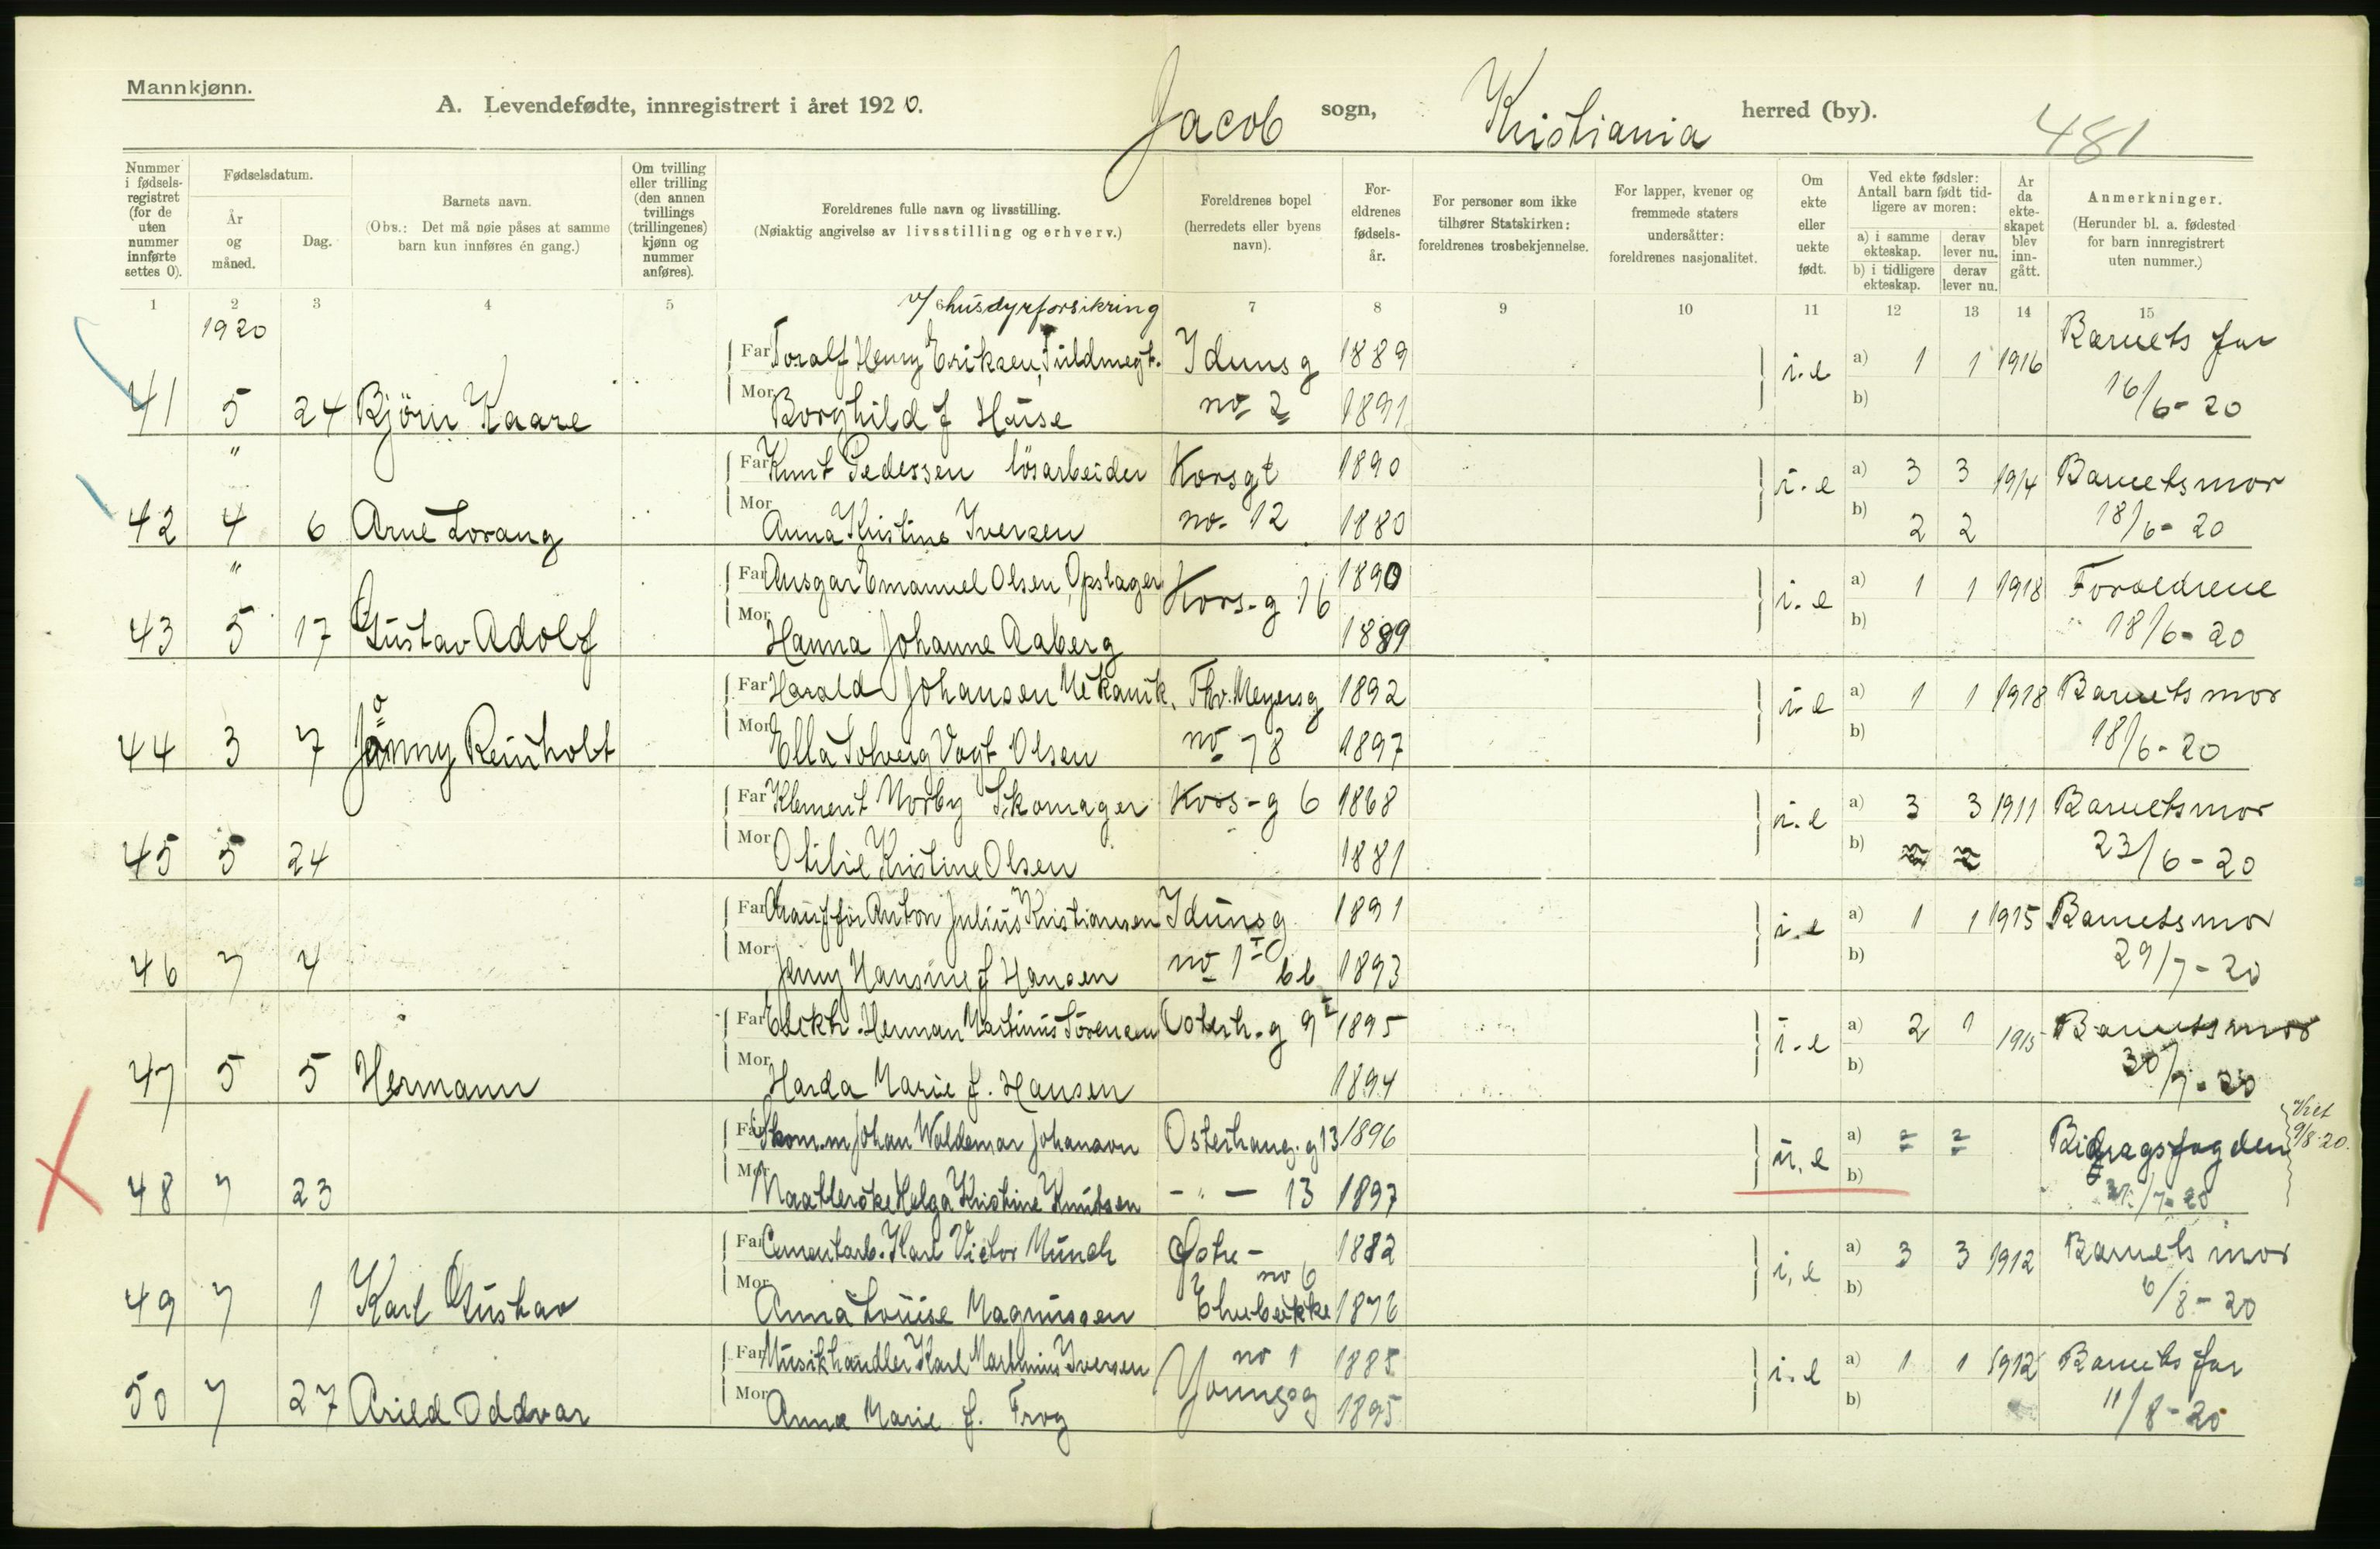 Mannkjønn.
A. Levendefødte, innregistrert i året 1920. Jacob sogn, Kristiania herred (by). 481
Nummer i fødselsregistret (for de uten nummer innførte settes 0).
Fødselsdatum.
År og måned.
Dag.
Barnets navn.
(Obs.: Det må nøie påses at samme barn kun innføres én gang.)
Om tvilling eller trilling (den annen tvillings (trillingenes) kjønn og nummer anføres).
Foreldrenes fulle navn og livsstilling.
(Nøiaktig angivelse av livsstilling og erhverv.)
Foreldrenes bopel (herredets eller byens navn).
Foreldrenes fødselsår.
For personer som ikke tilhører Statskirken: foreldrenes trosbekjennelse.
For lapper, kvener og fremmede staters undersåtter: foreldrenes nasjonalitet.
Om ekte eller uekte født.
Ved ekte fødsler: Antall barn født tidligere av moren:
a) i samme ekteskap. derav lever nu.
b) i tidligere ekteskap. derav lever nu.
År da ekteskapet blev inngått.
Anmerkninger.
(Herunder bl. a. fødested for barn innregistrert uten nummer.)
1 2 3 4 5 6 7 8 9 10 11 12 13 14 15
1920 v/ husdyrforsikring
Far Toralf Henry Eriksen, Fuldmegt. Idunsg 1889 i.e a) 1 1 1916 Barnets far
41 5 24 Bjørn Kaare Mor Borghild f Hause no 2 1891 b) 16/6-20
" Far Knut Pedersen løsarbeider Korsgt 1890 i.e a) 3 3 1914 Barnets mor
42 4 6 Arne Lorang Mor Anna Kristine Iversen no. 12 1880 b) 2 2 18/6-20
" Far Ansgar Emanuel Olsen, Opslager Kors.g 16 1890 i.e a) 1 1 1918 Foreldrene
43 5 17 Gustav Adolf Mor Hanna Johanne Aaberg 1899 b) 18/6-20
Far Harald Johansen Mekanik, Thv. Meyersg 1892 i.e a) 1 1 1918 Barnets mor
44 3 7 Jönny Reinholt Mor Ella Solveig Vogt Olsen no 78 1897 b) 18/6-20
Far Klement Norby Skomager Kors-g 6 1868 i.e a) 3 3 1911 Barnets mor
45 5 24 Mor Otilie Kristine Olsen 1881 b) 23/6-20
Far Chauffør Anton Julius Kristiansen Idunsg 1891 i.e a) 1 1 1915 Barnets mor
46 7 4 Mor Jenny Hansine f Hansen no 1 bb 1893 b) 29/7-20
Far Elektr. Herman Martinius Sørensen Osterh.g 9 1895 i.e a) 2 1 1915 Barnets mor
47 5 5 Hermann Mor Harda Marie f. Hansen 1894 b) 30/7-20
Far Skom.m Johan Waldemar Johanson Osterhaug.g 13 1896 u.e a) = = Bidragsfogden 9/8-20.
48 7 23 Mor Helga Kristine Knutsen - " - 13 1897 b) /7-20
Far Cementarb. Karl Victor Münch Østre - 1882 i,e a) 3 3 1912 Barnets mor
49 7 1 Karl Gustav Mor Anna Louise Magnussen Elvebakke no 6 1876 b) 6/8-20
Far Musikhandler Karl Marthinius Iversen no 1 1885 i.e a) 1 1 1912 Barnets far
50 7 27 Arild Oddvar Mor Anna Marie f. Frog Youngsg 1895 b) 11/8-20